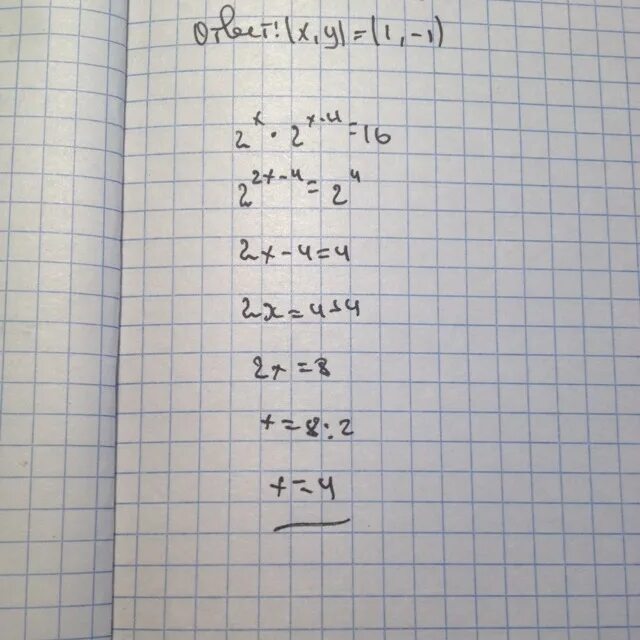 Ответ: (x,y)=(1,-1)
2^x · 2^(x-4) = 16
2^(2x-4) = 2^4
2x-4=4
2x=4+4
2x=8
x=8:2
x=4